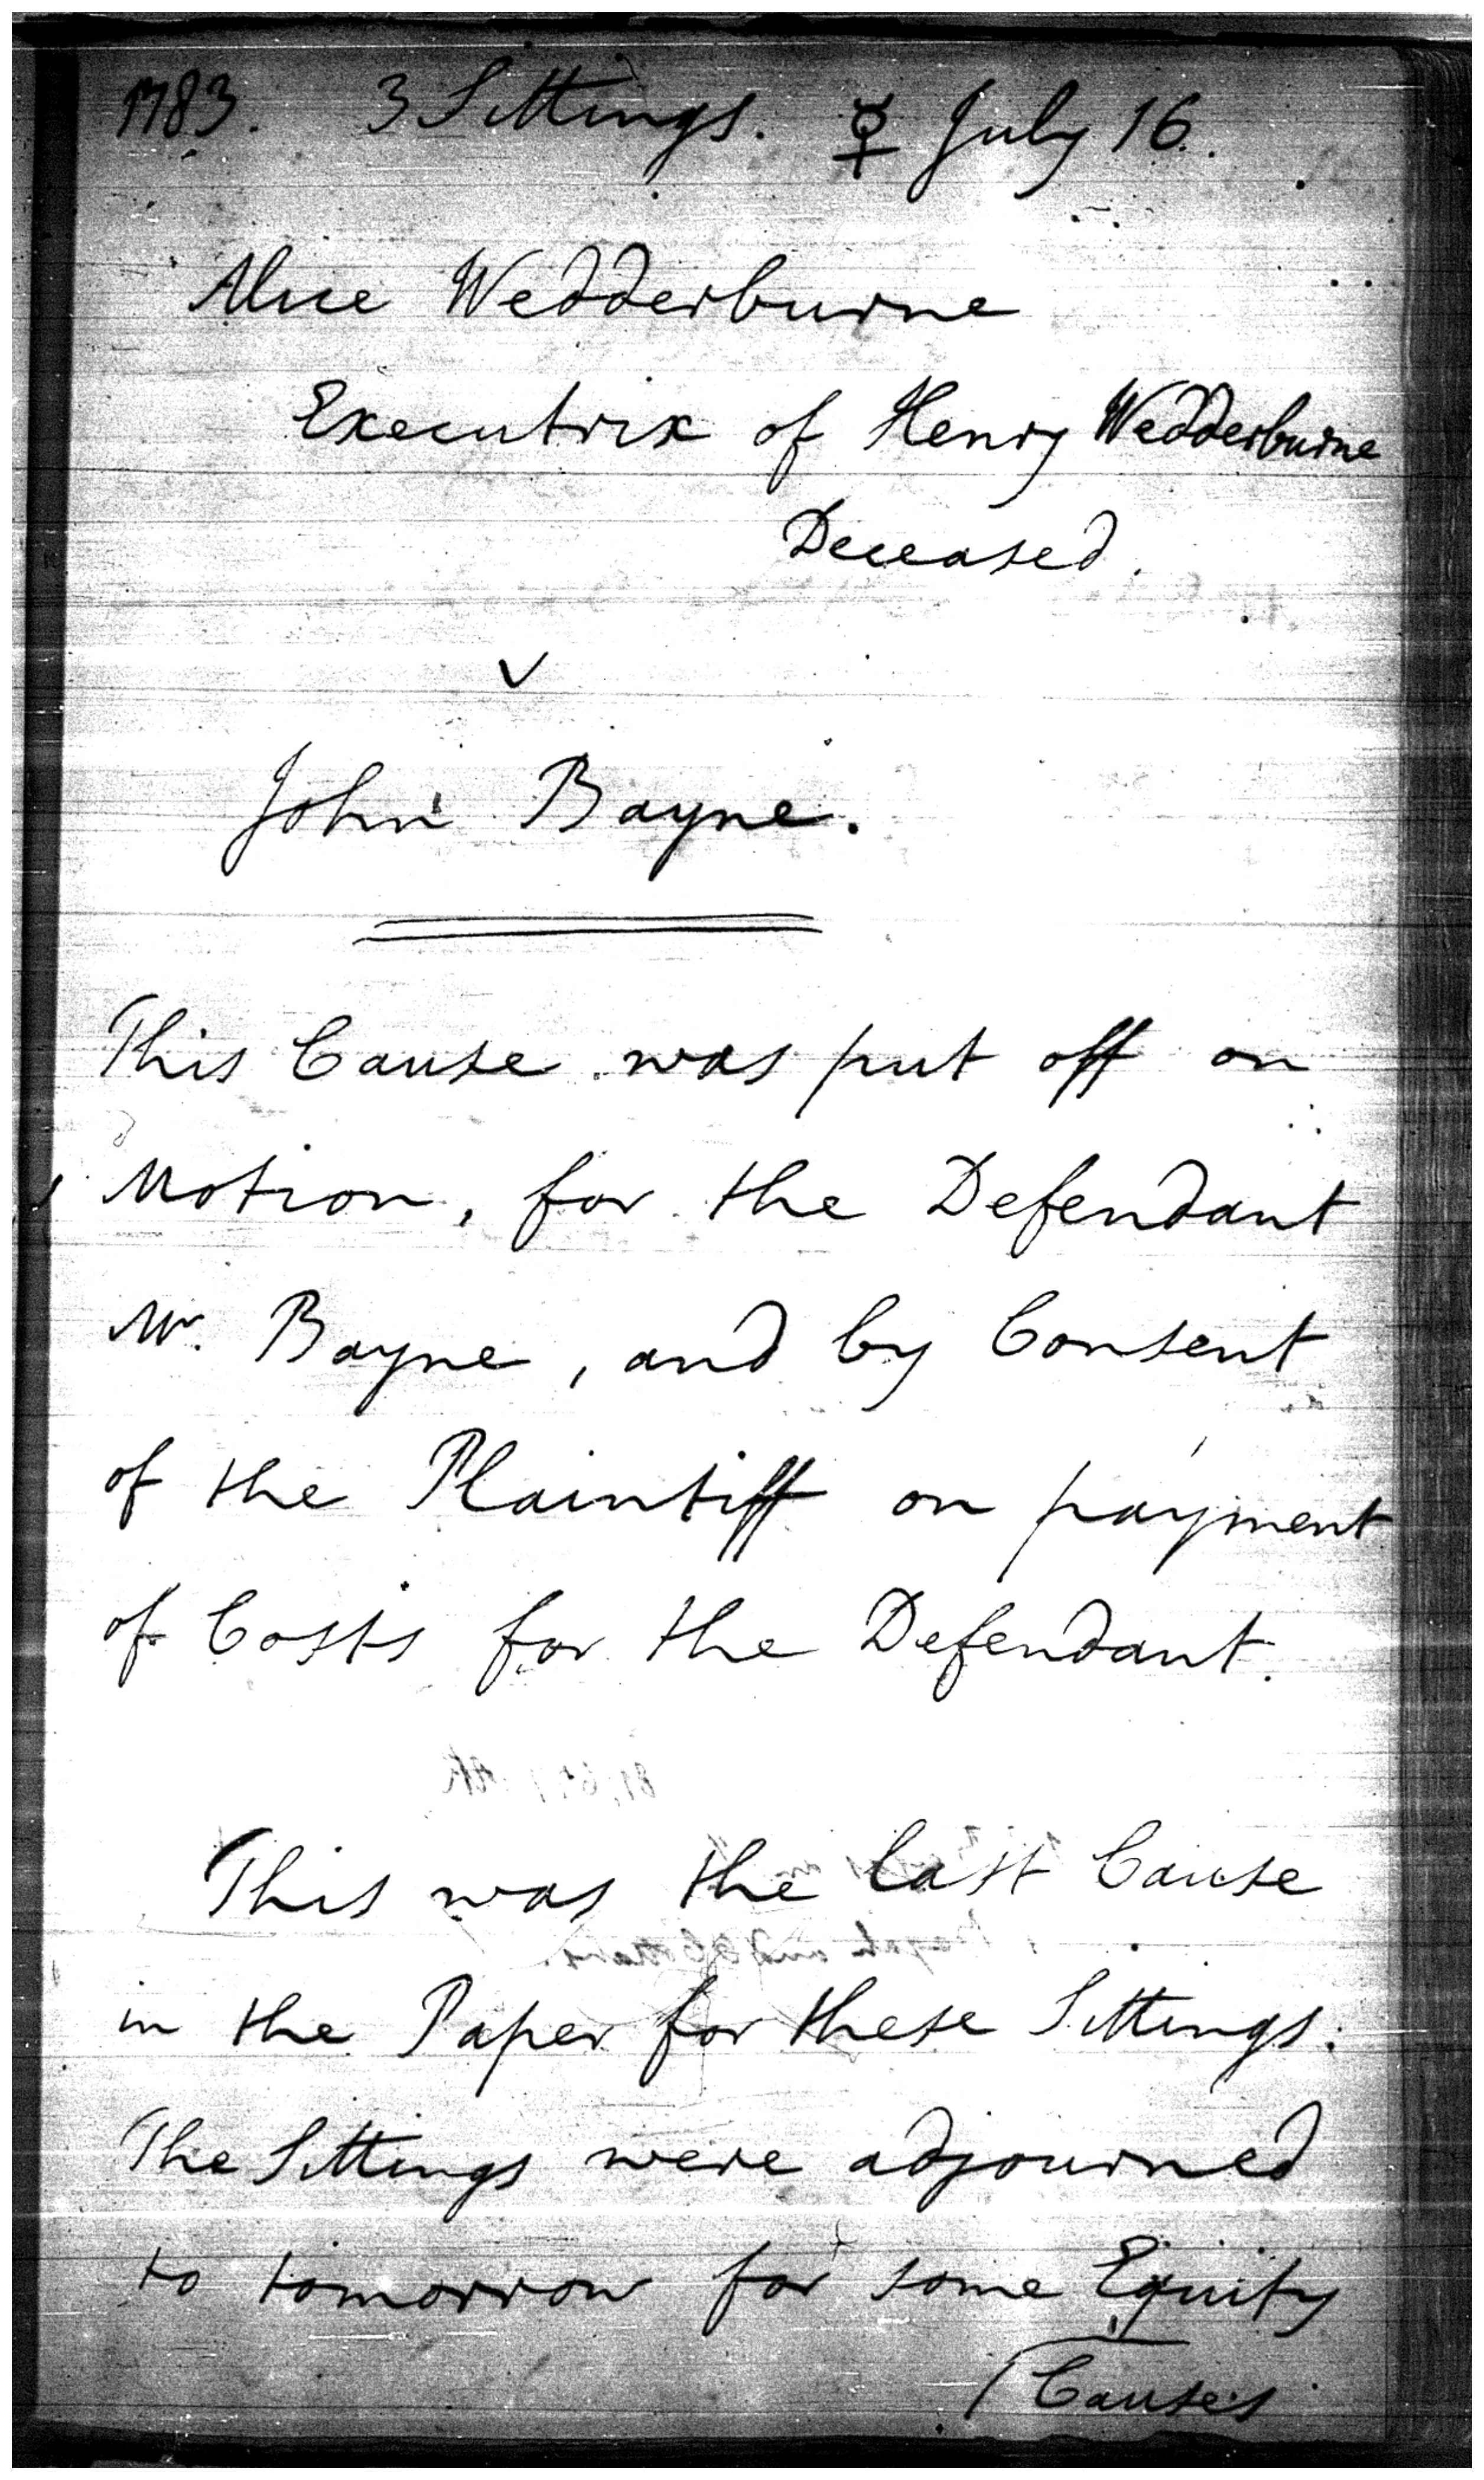 1783. 3 Sittings. ☿ July 16.
Alice Wedderburne
Executrix of Henry Wedderburne
Deceased.
v
John Bayne.
This Cause was put off on
Motion, for the Defendant
Mr. Bayne, and by Consent
of the Plaintiff on payment
of Costs for the Defendant.
This was the last Cause
in the Paper for these Sittings.
The Sittings were adjourned
to tomorrow for some Equity
Causes